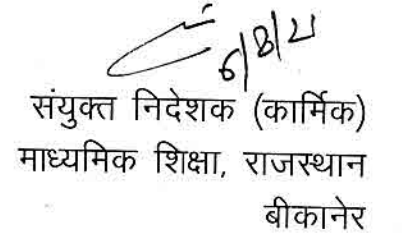 6/8/21
संयुक्त निदेशक (कार्मिक)
माध्यमिक शिक्षा, राजस्थान
बीकानेर